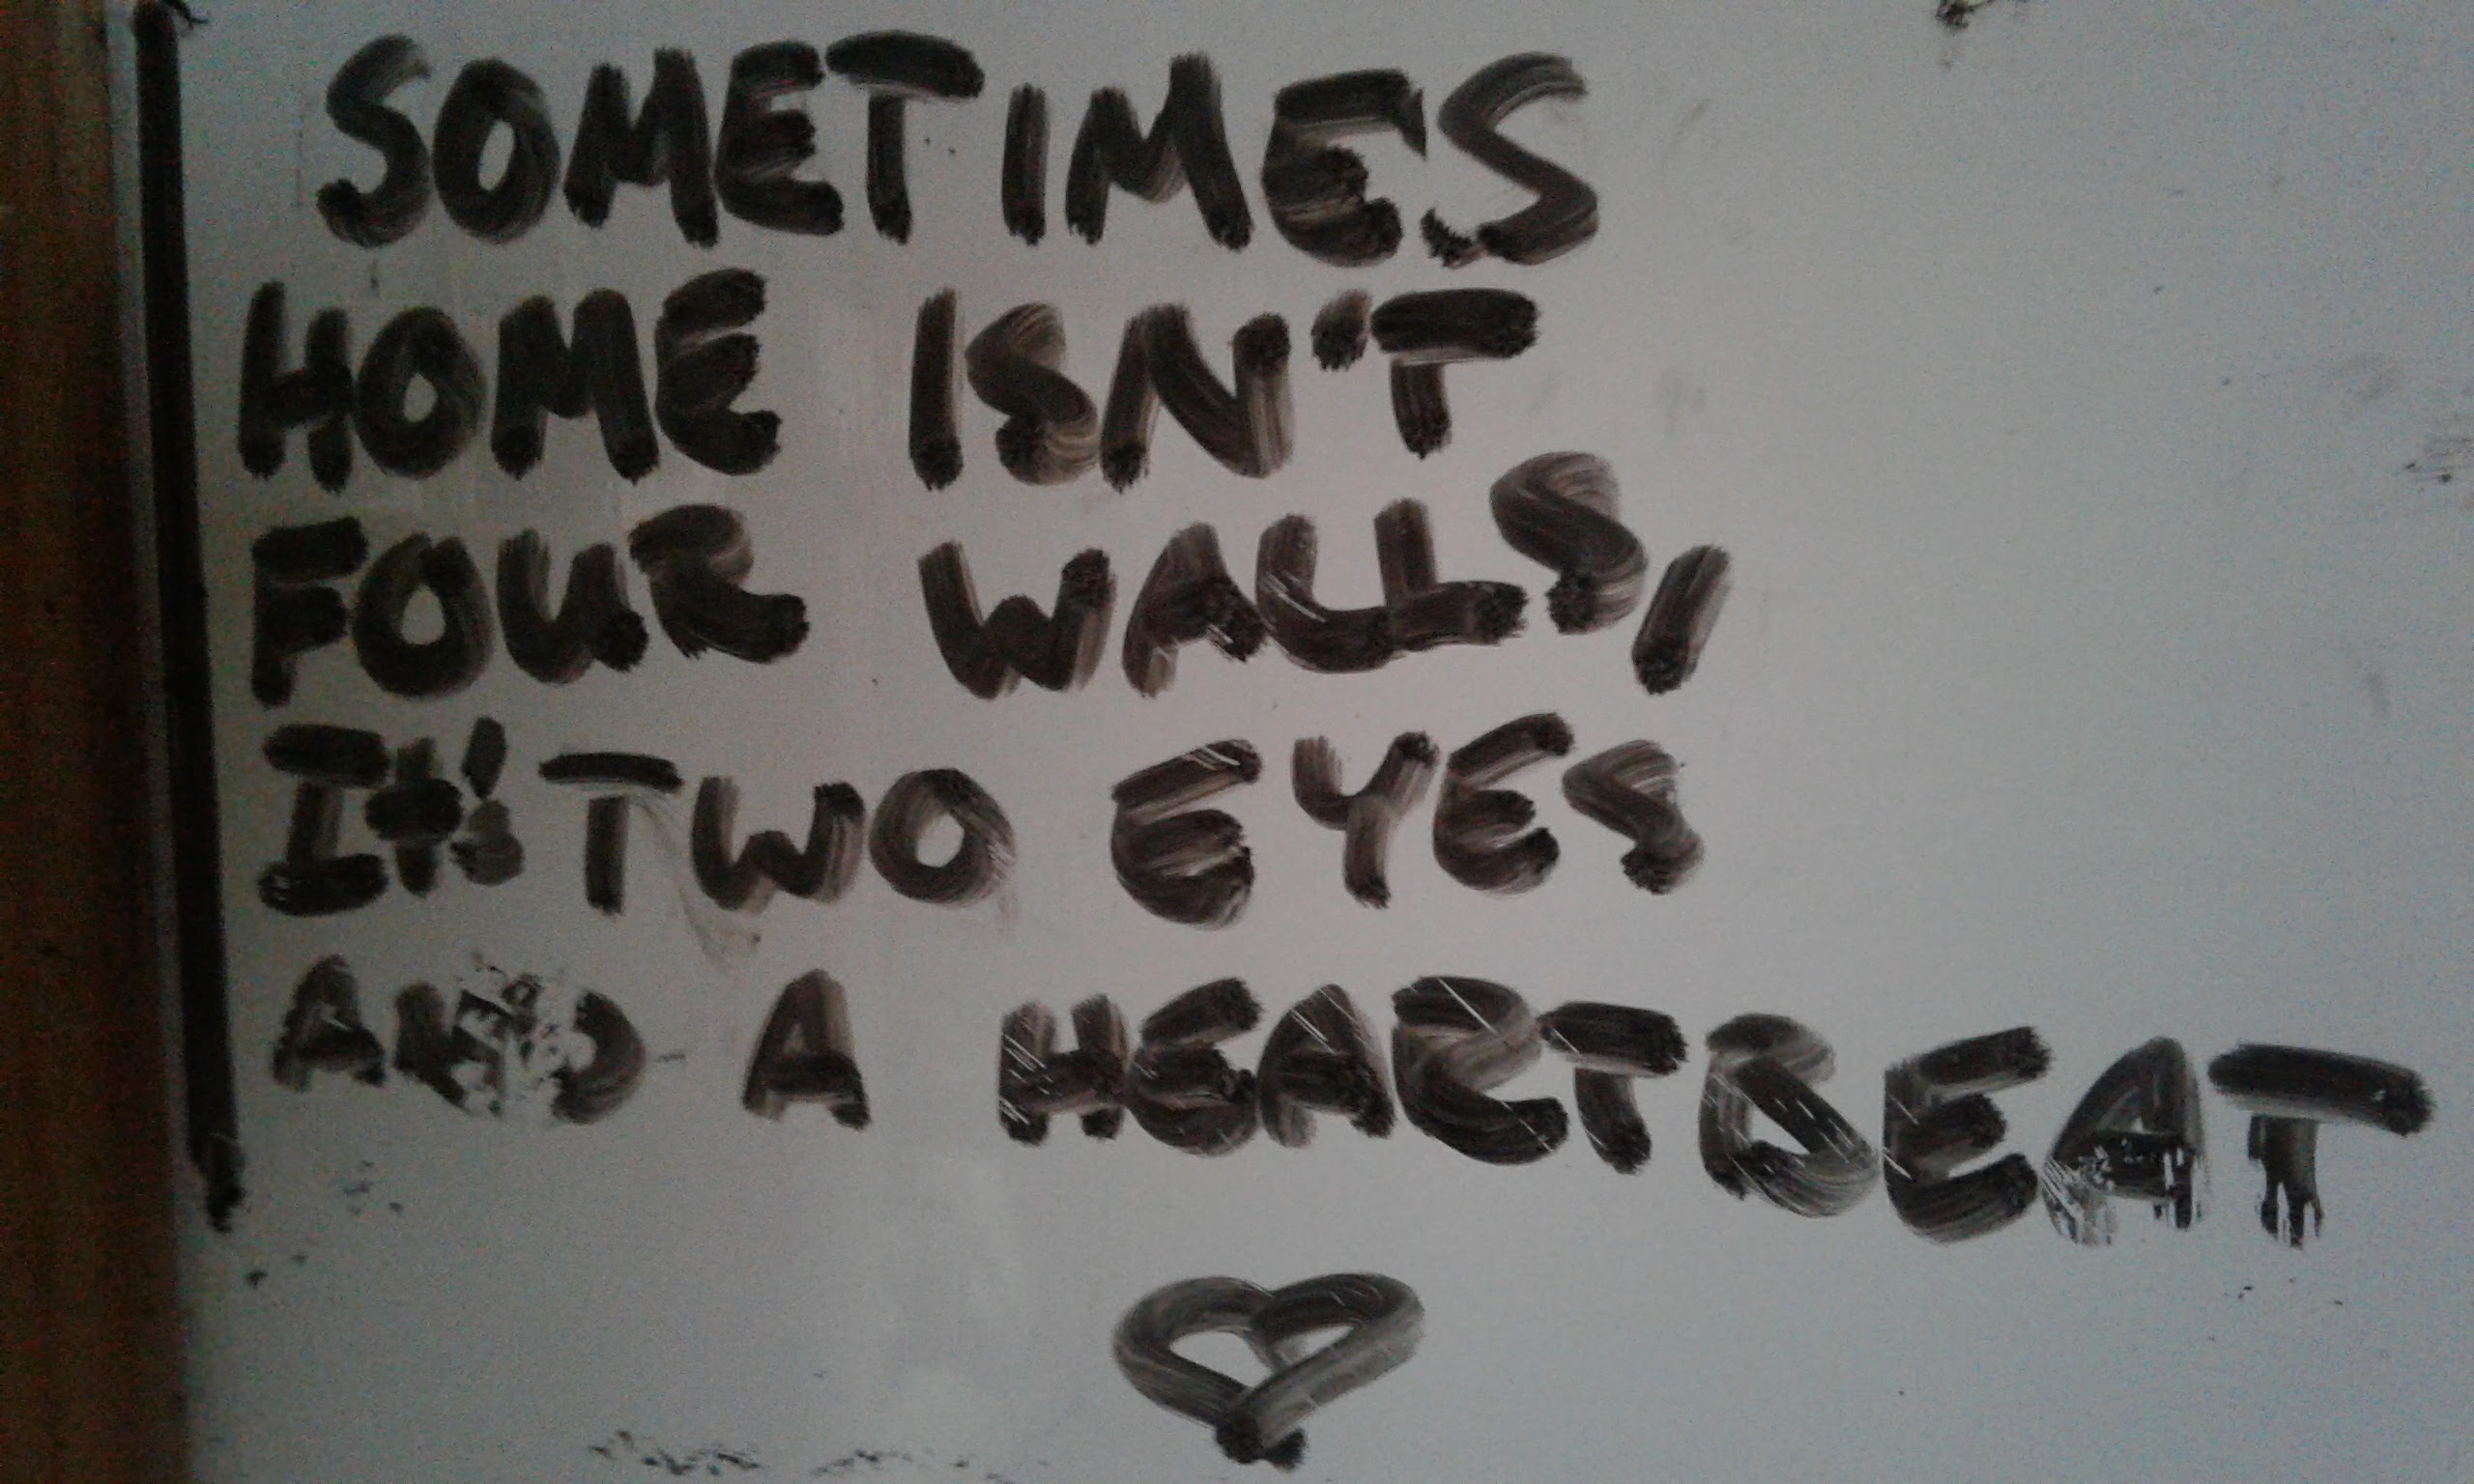 SOMETIMES
HOME ISN'T
FOUR WALLS,
It's TWO EYES
AND A HEARTBEAT